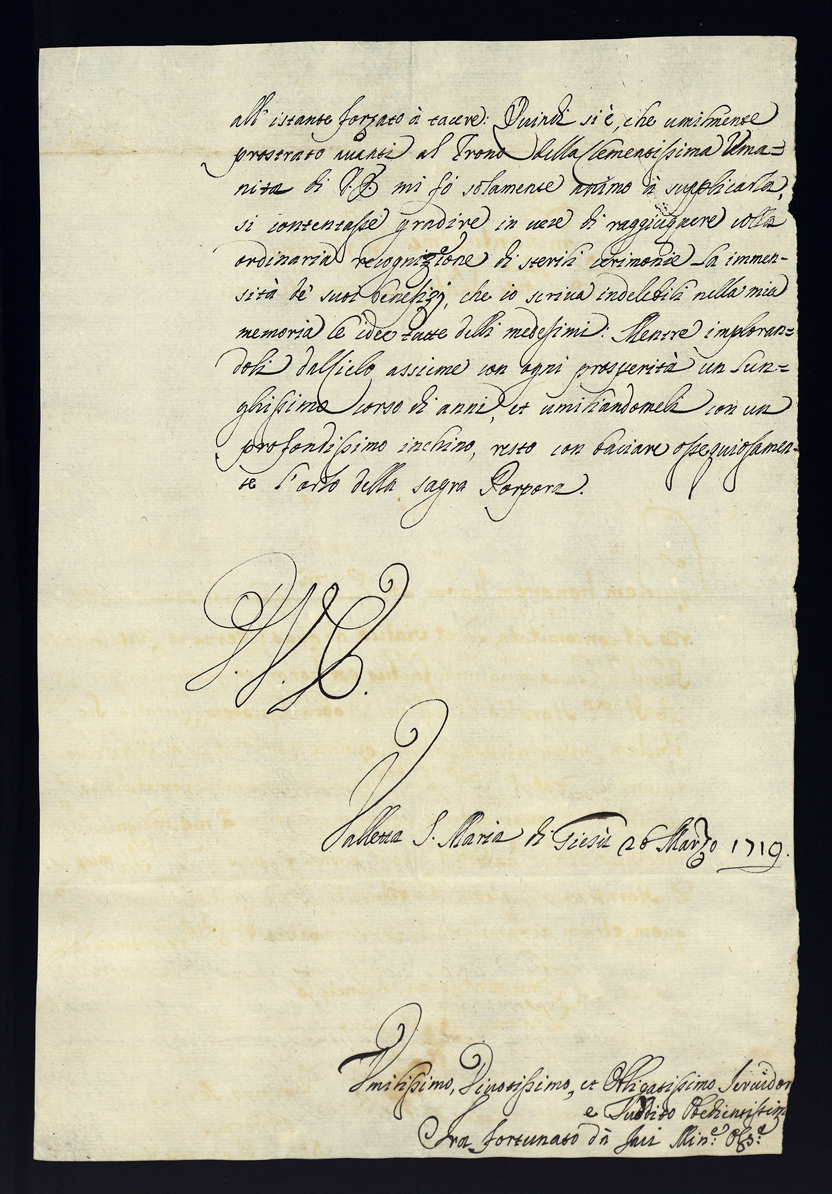 all' istante forzato à tacere: Quindi si è, che umilmente
prostrato avanti al Trono della Clementissima Uma=
nita di V.E. mi fò solamente animo à supplicarla,
si contentasse gradire in vece di raggiugnere colla
ordinaria recognizione di sterili cerimonie la immen-
sità de' suoi benefizj, che io scriva indelebili nella mia
memoria le idee tutte delli medesimi: Mentre imploran=
doli dal Cielo assieme con ogni prosperità un lun=
ghissimo corso di anni, et umiliandomeli con un
profondissimo inchino, resto con baciare ossequiosamen-
te l'orlo della sagra Porpora.
Valletta S. Maria di Giesù 26 Marzo 1719.
Umilissimo, Divotissimo, et Obligatissimo Servidor
e Suddito Obedientissim
Fra Fortunato Min: Oss: